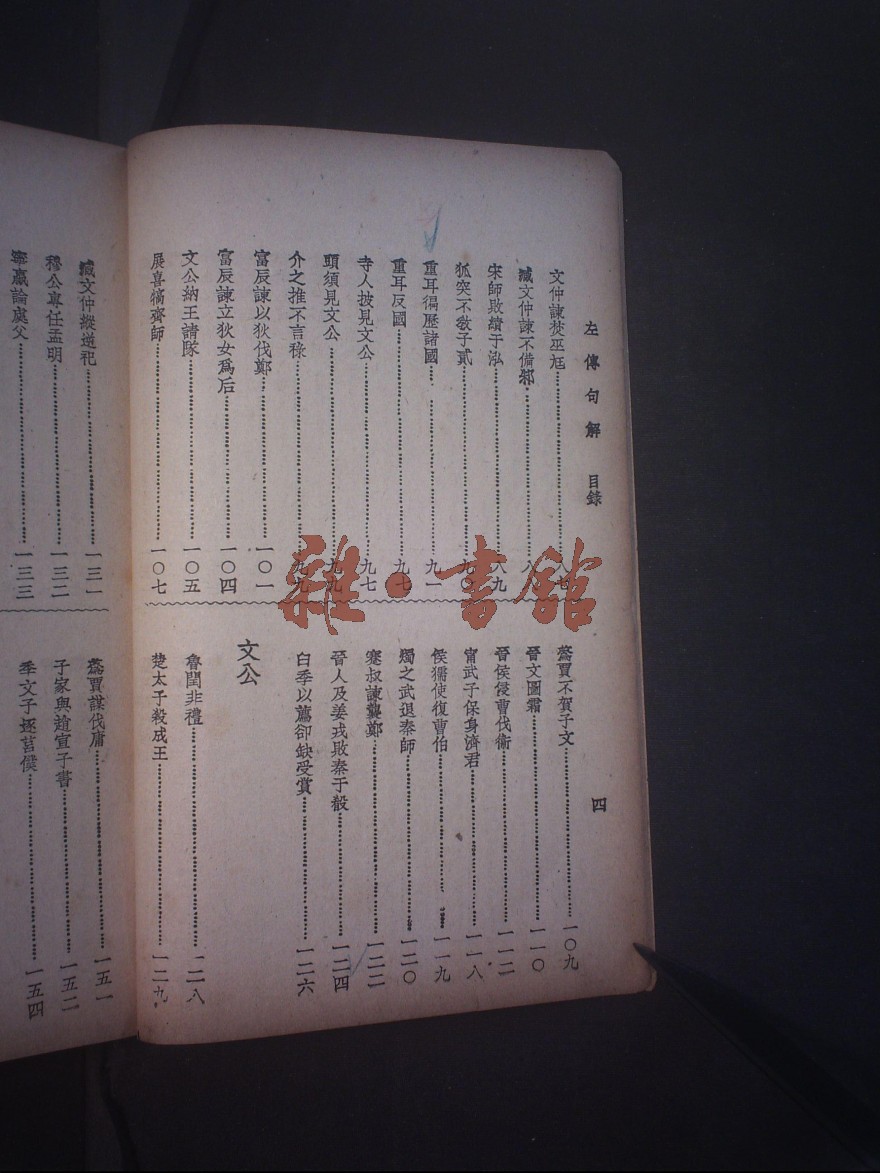 左傳句解 目錄 四
文仲諫焚巫尫
臧文仲諫不備邾
宋師敗績于泓 八九
狐突不教子貳 九〇
重耳徧歷諸國 九一
重耳反國 九七
寺人披見文公 九七
頭須見文公 九九
介之推不言祿 九九
富辰諫以狄伐鄭 一〇一
富辰諫立狄女爲后 一〇四
文公納王請隊 一〇五
展喜犒齊師 一〇七
蒍賈不賀子文 一〇九
晉文圖霸 一一〇
晉侯侵曹伐衞 一一二
甯武子保身濟君 一一八
侯獳使復曹伯 一一九
燭之武退秦師 一二〇
蹇叔諫襲鄭 一二二
晉人及姜戎敗秦于殽 一二四
臼季以薦卻缺受賞 一二六
文公
魯閏非禮 一二八
楚太子殺成王 一二九
臧文仲縱逆祀 一三一
穆公專任孟明 一三二
甯嬴論處父 一三三
蒍賈謀伐庸 一五一
子家與趙宣子書 一五二
季文子逐莒僕 一五四
雜·書館